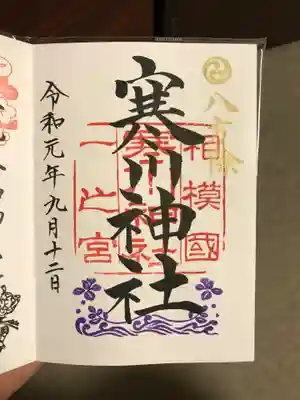 八方除
相模國
寒川神社
寒川神社
一之宮
令和元年九月十二日